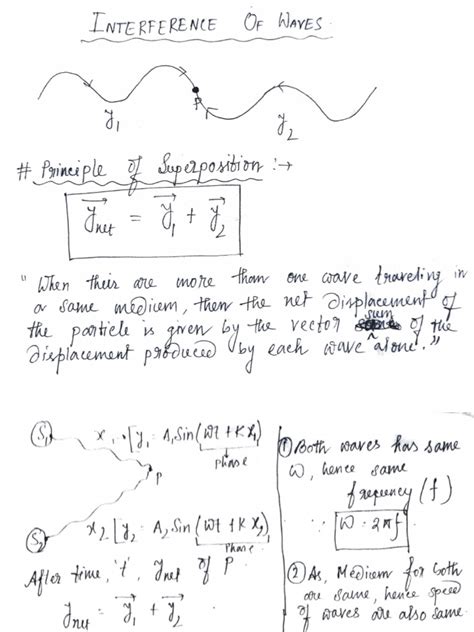 INTERFERENCE OF WAVES
P
y₁
y₂
# Principle of Superposition :→
y⃗net = y⃗₁ + y⃗₂
"When their are more than one wave traveling in
a same medium, then the net displacement of
the particle is given by the vector sum of the
displacement produced by each wave alone."
S₁ x₁ [y₁ = A₁ Sin(ωt + Kx₁)
phase
P
S₂ x₂ [y₂ = A₂ Sin(ωt + Kx₂)
Phase
After time, 't', ynet of P
ynet = y⃗₁ + y⃗₂
① Both waves has same
ω, hence same
frequency (f)
∵ ω = 2πf
② As, Medium for both
are same, hence speed
of waves are also same.